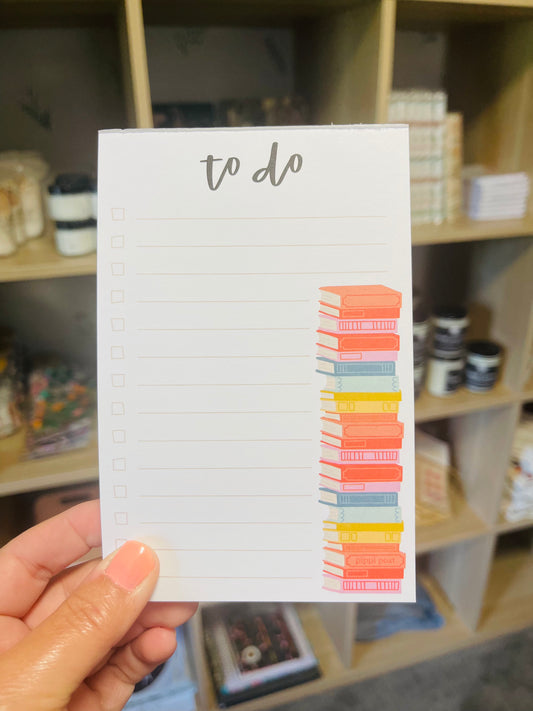 to do
pippi post